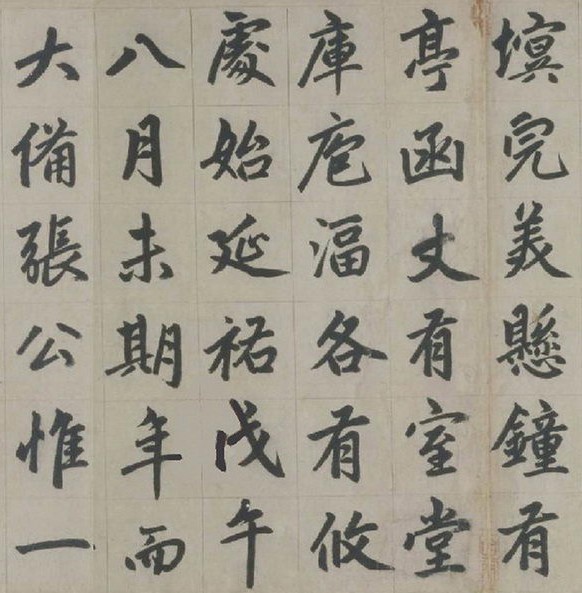 塓完美懸鐘有
亭函丈有室堂
庫庖湢各有攸
處始延祐戊午
八月未期年而
大備張公惟一